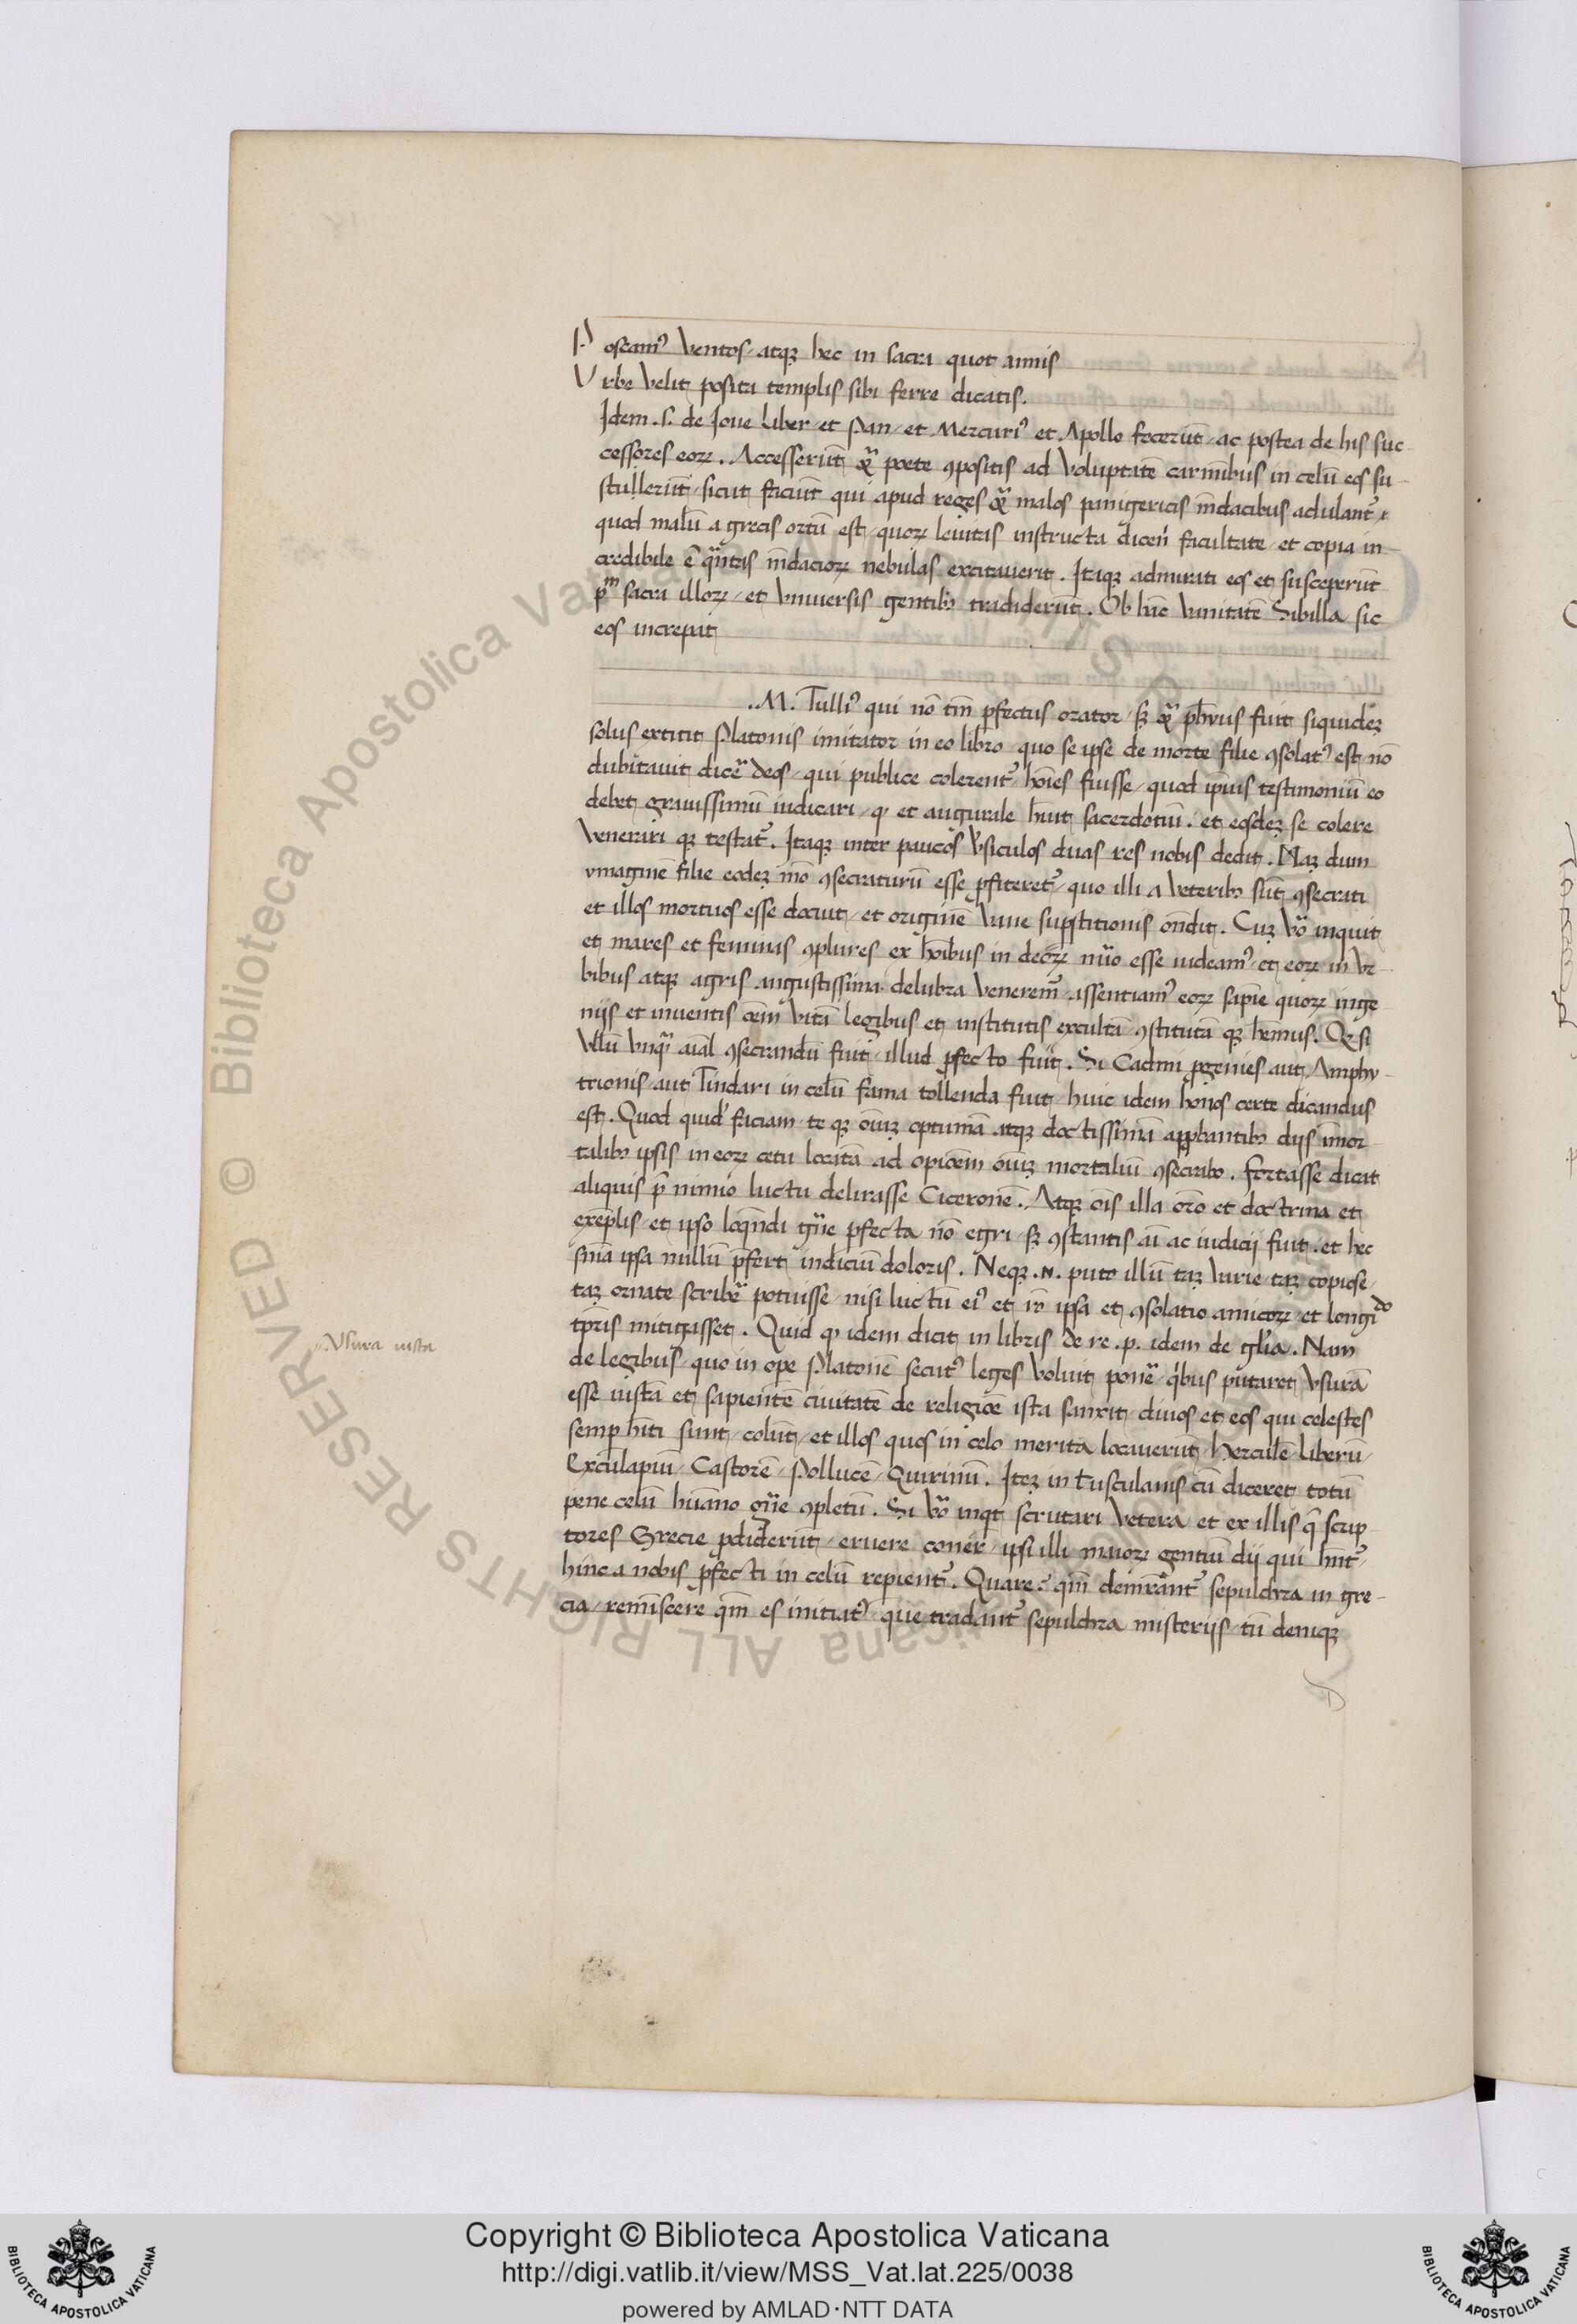 Poscam⁹ ventos / atqꝫ hec in sacra quot annis
Vrbe velit posita templis sibi ferre dicatis.
Idem .s. de Ioue liber et Pan / et Mercuri⁹ et Apollo fecerūt / ac postea de his suc-
cessores eoꝝ. Accesserūt poete ꝯpositis ad voluptatē carmībus in celū eos su-
stullerūt / sicut faciūt qui apud reges malos panigericis mēdacibus adulant᷑ /
quod malū a grecis ortū est / quoꝝ leuitas instructa facultate / et copia in-
credibile ē mēdacioꝝ nebulas excitauerit. Itaqꝫ admirati eos et susceperūt
sacra illoꝝ / et vniuersis gentibꝫ tradiderūt. Ob hāc vanitatē Sibilla sic
eos increpat
.M. Tulli⁹ qui nō tm̄ ꝑfectus orator / sꝫ ph̄us fuit siquidēꝫ
solus extitit Platonis imitator in eo libro quo se ipse de morte filie ꝯsolat⁹ est nō
dubitauit dicē deos / qui publice colerent᷑ hōies fuisse / quod ip̄ius testimoniū eo
debet grauissimū iudicari / qꝫ et augurale h̄uit sacerdotiū. et eosdeꝫ se colere
venerari qꝫ testat᷑. Itaqꝫ inter paucos v̄siculos duas res nobis dedit. Naꝫ dum
ymaginē filie eodeꝫ mō ꝯsecraturū esse ꝓfiteret᷑ / quo illi a veteribꝫ sūt ꝯsecrati
et illos mortuos esse docuit / et originē vane suꝑstitionis on̄dit. Cuꝫ vō inquit
et mares et feminas ꝯplures ex hōibus in deoꝝ nūo esse uideam⁹ / et eoꝝ in vr-
bibus atqꝫ agris augustissima delubra venerem᷑ / assentiam⁹ eoꝝ sapīe quoꝝ inge
nijs et inuentis oēm vitā legibus et institutis excultā ꝯstitutā qꝫ hēmus. Qꝫ si
vllū vnqꝫ aīal ꝯsecrandū fuit / illud ꝓfecto fuit. Si Cadmi ꝓgenies aut Amphy-
trionis aut Tindari in celū fama tollenda fuit / huic idem honos certe dicandus
est. Quod quid faciam / te qꝫ oīuꝫ optumā atqꝫ doctissimā approbantibꝫ dijs īmor
talibꝫ ipsis in eoꝝ cetu locatā ad opiōem oīuꝫ mortaliū ꝯsecrabo. Fortasse dicat
aliquis p̄ nimio luctu delirasse Ciceronē. Atqꝫ oīs illa orō et doctrina et
exēplis / et ipso loqūendi gn̄e ꝑfecta nō egri / sꝫ ꝯstantis aī ac iudicij fuit. et hec
sn̄ia ipsa nullū p̄fert indiciū doloris. Neqꝫ .n. puto illū taꝫ varie taꝫ copiose /
taꝫ ornate scribē potuisse / nisi luctū ei⁹ et ipsa et ꝯsolatio amicoꝝ et longido
tp̄ris mitigasset. Quid qꝫ idem dicit in libris de re .p. idem de glīa. Nam
de legibus / quo in ope Platonē secut⁹ leges voluit ponē / qͥbus putaret vsurā
esse iustā et sapientē ciuitatē de religiōe ista sanxit / diuos et eos qui celestes
semꝑ hīti sunt / colūt / et illos quos in celo merita locauerūt herculē liberū /
Exculapiū / Castorē / Pollucē / Quirinū. Iteꝫ in tusculanis cū diceret totū
pene celū humano gn̄e ꝯpletū. Si vō inqt scrutari vetera et ex illis q̄ scrip
tores Grecie ꝓdiderūt / eruere coner / ipsi illi maioꝝ gentiū dij qui hn̄t᷑ /
hinc a nobis ꝓfecti in celū repient᷑. Quare qm̄ demr̄ant᷑ sepulchra in gre-
cia / remīscere qm̄ es initiat⁹ que tradāt᷑ sepulchra misterijs / tū deniqꝫ
Vsura iusta
Copyright © Biblioteca Apostolica Vaticana
http://digi.vatlib.it/view/MSS_Vat.lat.225/0038
powered by AMLAD·NTT DATA